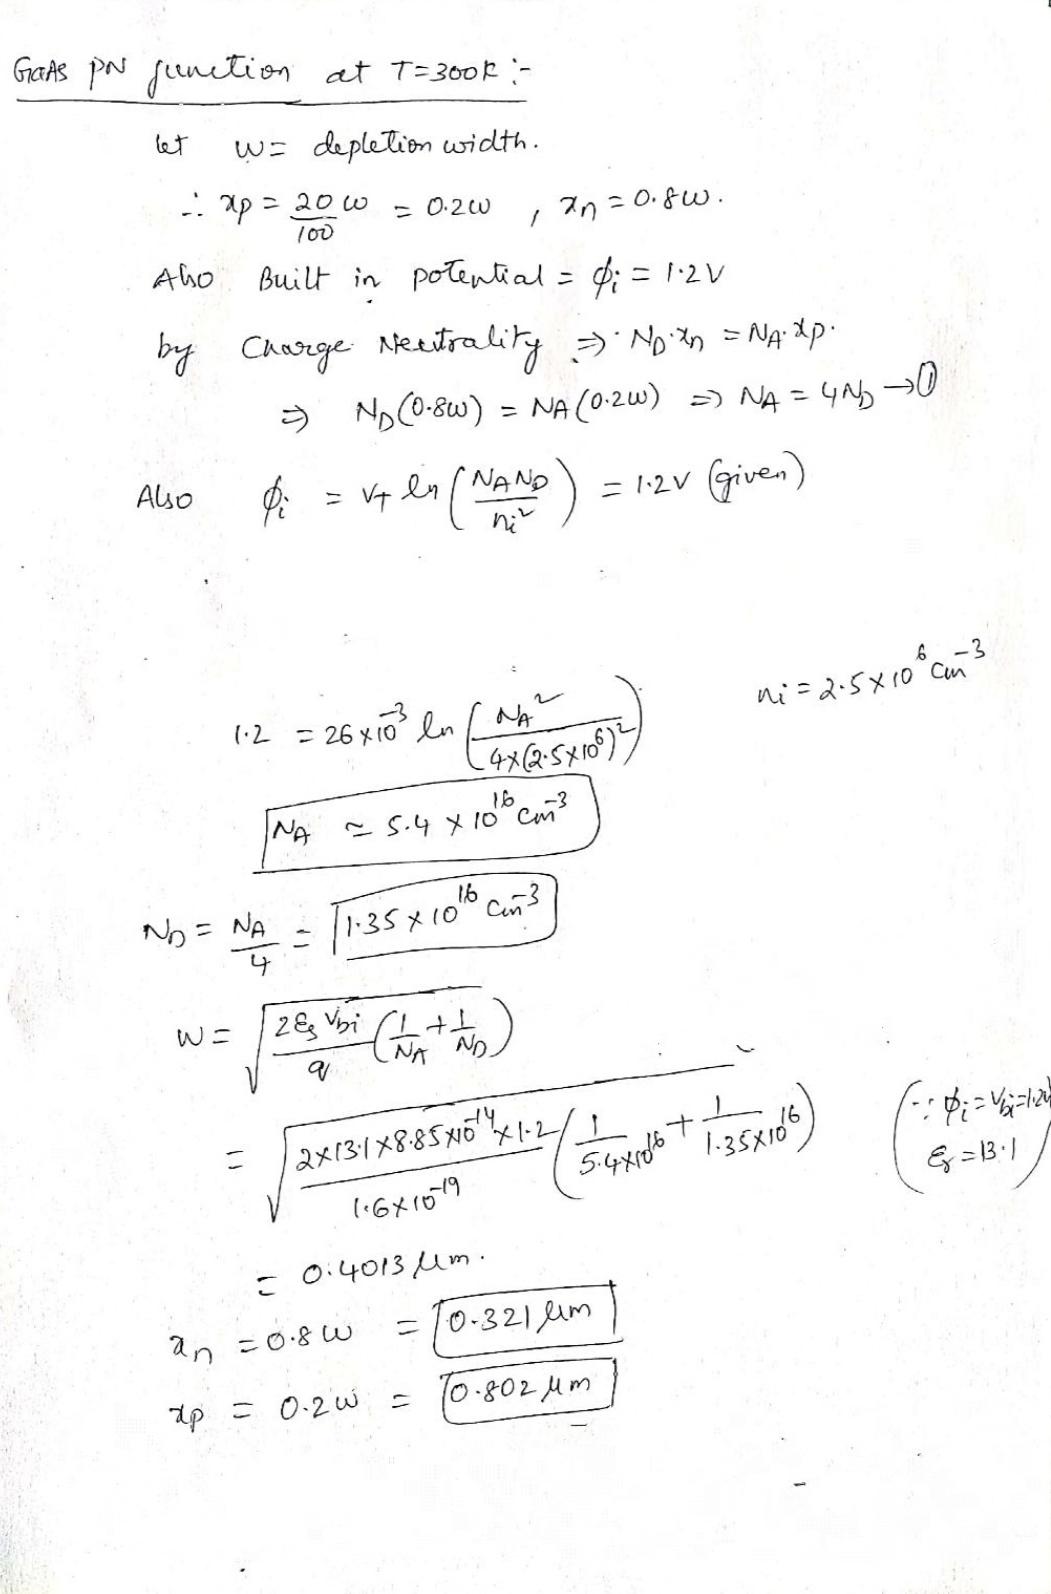 GaAs PN junction at T=300K :-
let w = depletion width.
∴ xp = 20 w / 100 = 0.2w , xn = 0.8w.
Also Built in potential = ϕi = 1.2V
by Charge Neutrality ⇒ ND·xn = NA·xp.
⇒ ND(0.8w) = NA(0.2w) ⇒ NA = 4ND → ①
Also ϕi = VT ln (NAND / ni²) = 1.2V (given)
ni = 2.5×10⁶ cm⁻³
1.2 = 26×10⁻³ ln (NA² / 4×(2.5×10⁶)²)
NA ≃ 5.4 × 10¹⁶ cm⁻³
ND = NA / 4 = 1.35 × 10¹⁶ cm⁻³
w = √(2εs Vbi / q (1/NA + 1/ND))
= √(2×13.1×8.85×10⁻¹⁴×1.2 / 1.6×10⁻¹⁹ (1 / 5.4×10¹⁶ + 1 / 1.35×10¹⁶))
(∵ ϕi = Vbi = 1.2V
εs = 13.1)
= 0.4013 μm.
xn = 0.8w = 0.321 μm
xp = 0.2w = 0.802 μm